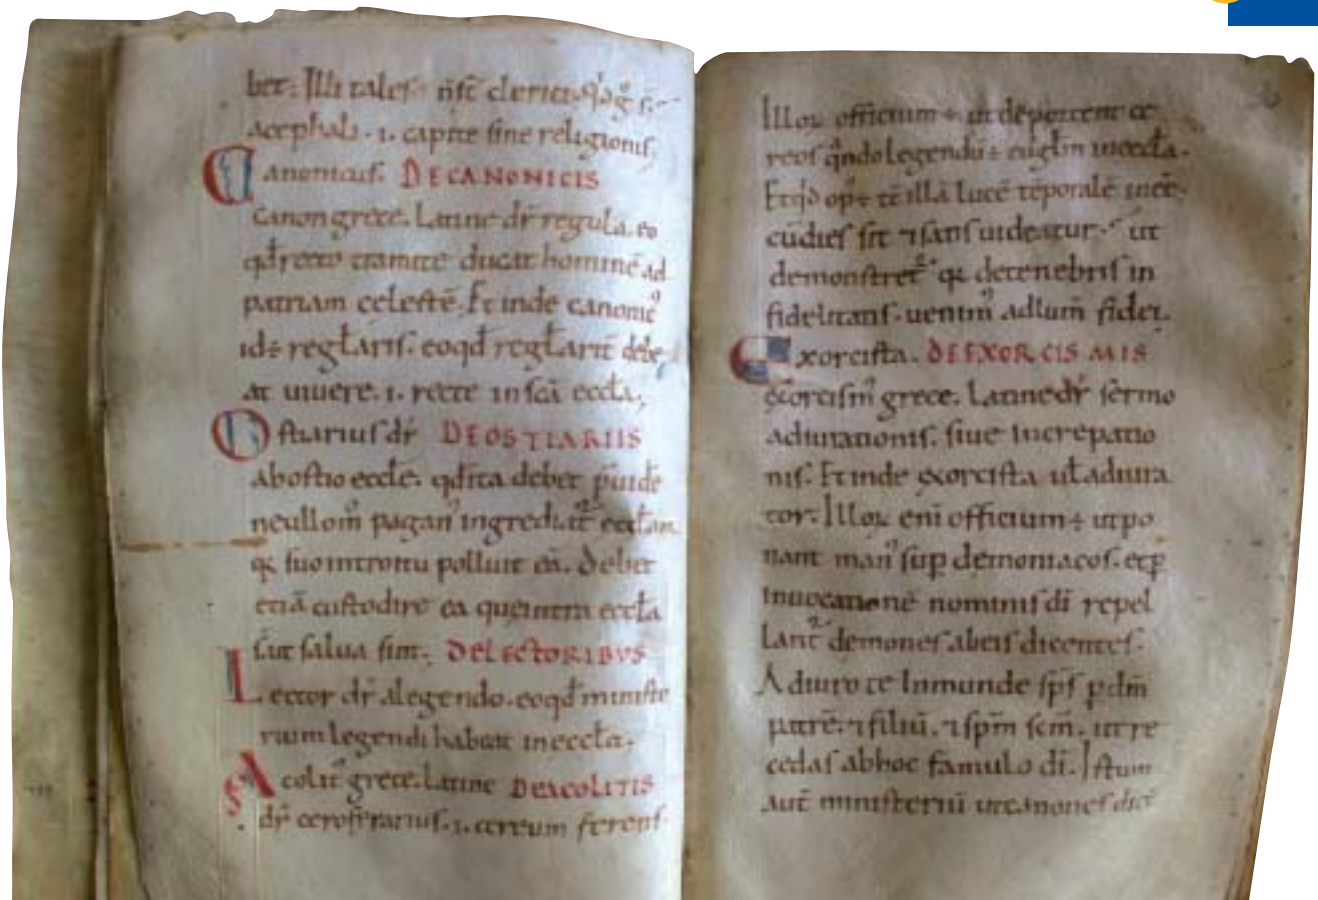 bet: Illi tales nsc̄ clerici
acephali .i. capite sine religionis.
Canonicus. DECANONICIS
canon grece. Latine dr̄ regula. eo
qd̄ recto tramite ducat hominē ad
patriam celestē. Et inde canonicꝰ
id÷ regłaris. eoqd̄ regłarit̄ debe
at uiuere .i. recte in scā eccła.
Ostiarius dr̄ DEOSTIARIIS
abostio eccłe. qd̄ ita debet p̄uide
ne ullom̄ paganꝰ ingrediat̄ eccłam
suo introitu polluat eā. debet
etiā custodire ea que intra eccła
ut salua sint. DELECTORIBUS
Lector dr̄ alegendo. eoqd̄ministe
rium legendi habeat ineccła.
Acolit̄ grece. Latine DEACOLITIS
dr̄ ceroferarius .i. cereum ferens
Illoꝝ officium ÷ ut deportent ce
reos qn̄do legendū ÷ euglm̄ ineccła.
Et op÷ illā lucē tēporalē
cūdies sit ⁊ sans uideatur. ut
demonstret̄ detenebris in
fidelitatis. uenimꝰ adlum̄ fidei.
Exorcista. DEEXORCISMIS
exorcismꝰ grece. Latinedr̄ sermo
adiurationis. siue increpatio
nis. Et inde exorcista uł adiura
tor. Illoꝝ eni officium ÷ utpo
nant manꝰ suꝑ demoniacos. etꝑ
inuocationē nominis dī repel
lant̄ demones abeis dicentes.
Adiuro te Inmunde sps̄ ꝑdm̄
patrē. ⁊ filiū. ⁊ spm̄ scm̄. utre
cedas abhoc famulo dī. Istum
aut̄ ministeriū utcanones dict̄